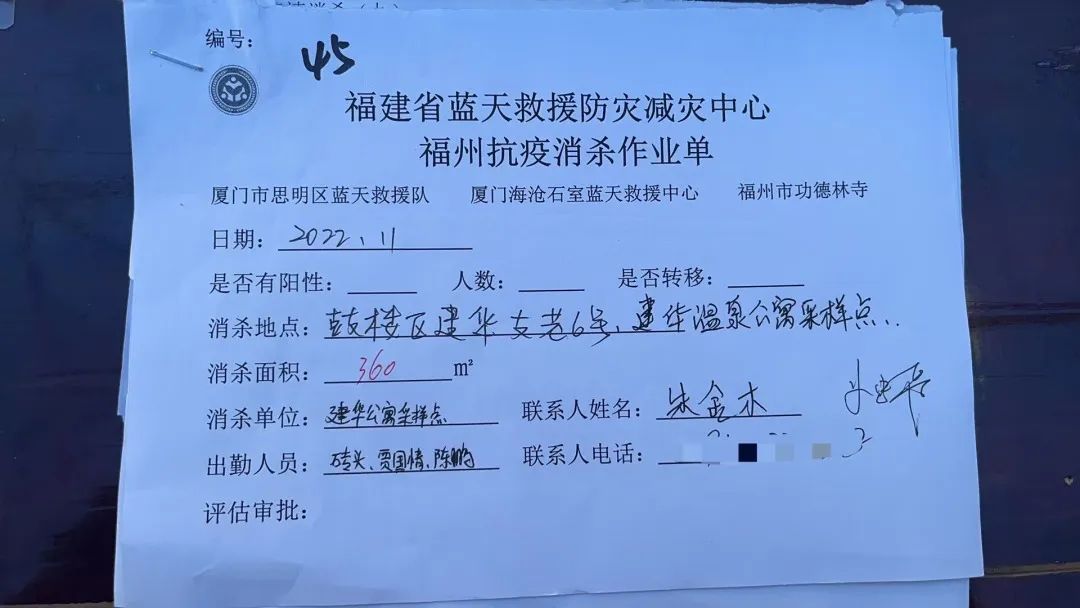 编号: 45
福建省蓝天救援防灾减灾中心
福州抗疫消杀作业单
厦门市思明区蓝天救援队 厦门海沧石室蓝天救援中心 福州市功德林寺
日期: 2022.11
是否有阳性: 人数: 是否转移:
消杀地点: 鼓楼区建华支巷6号、建华温泉公寓采样点..
消杀面积: 360 m²
消杀单位: 建华公寓采样点 联系人姓名: 朱金木
出勤人员: 砖头、贾国情、陈鹏 联系人电话:
评估审批: